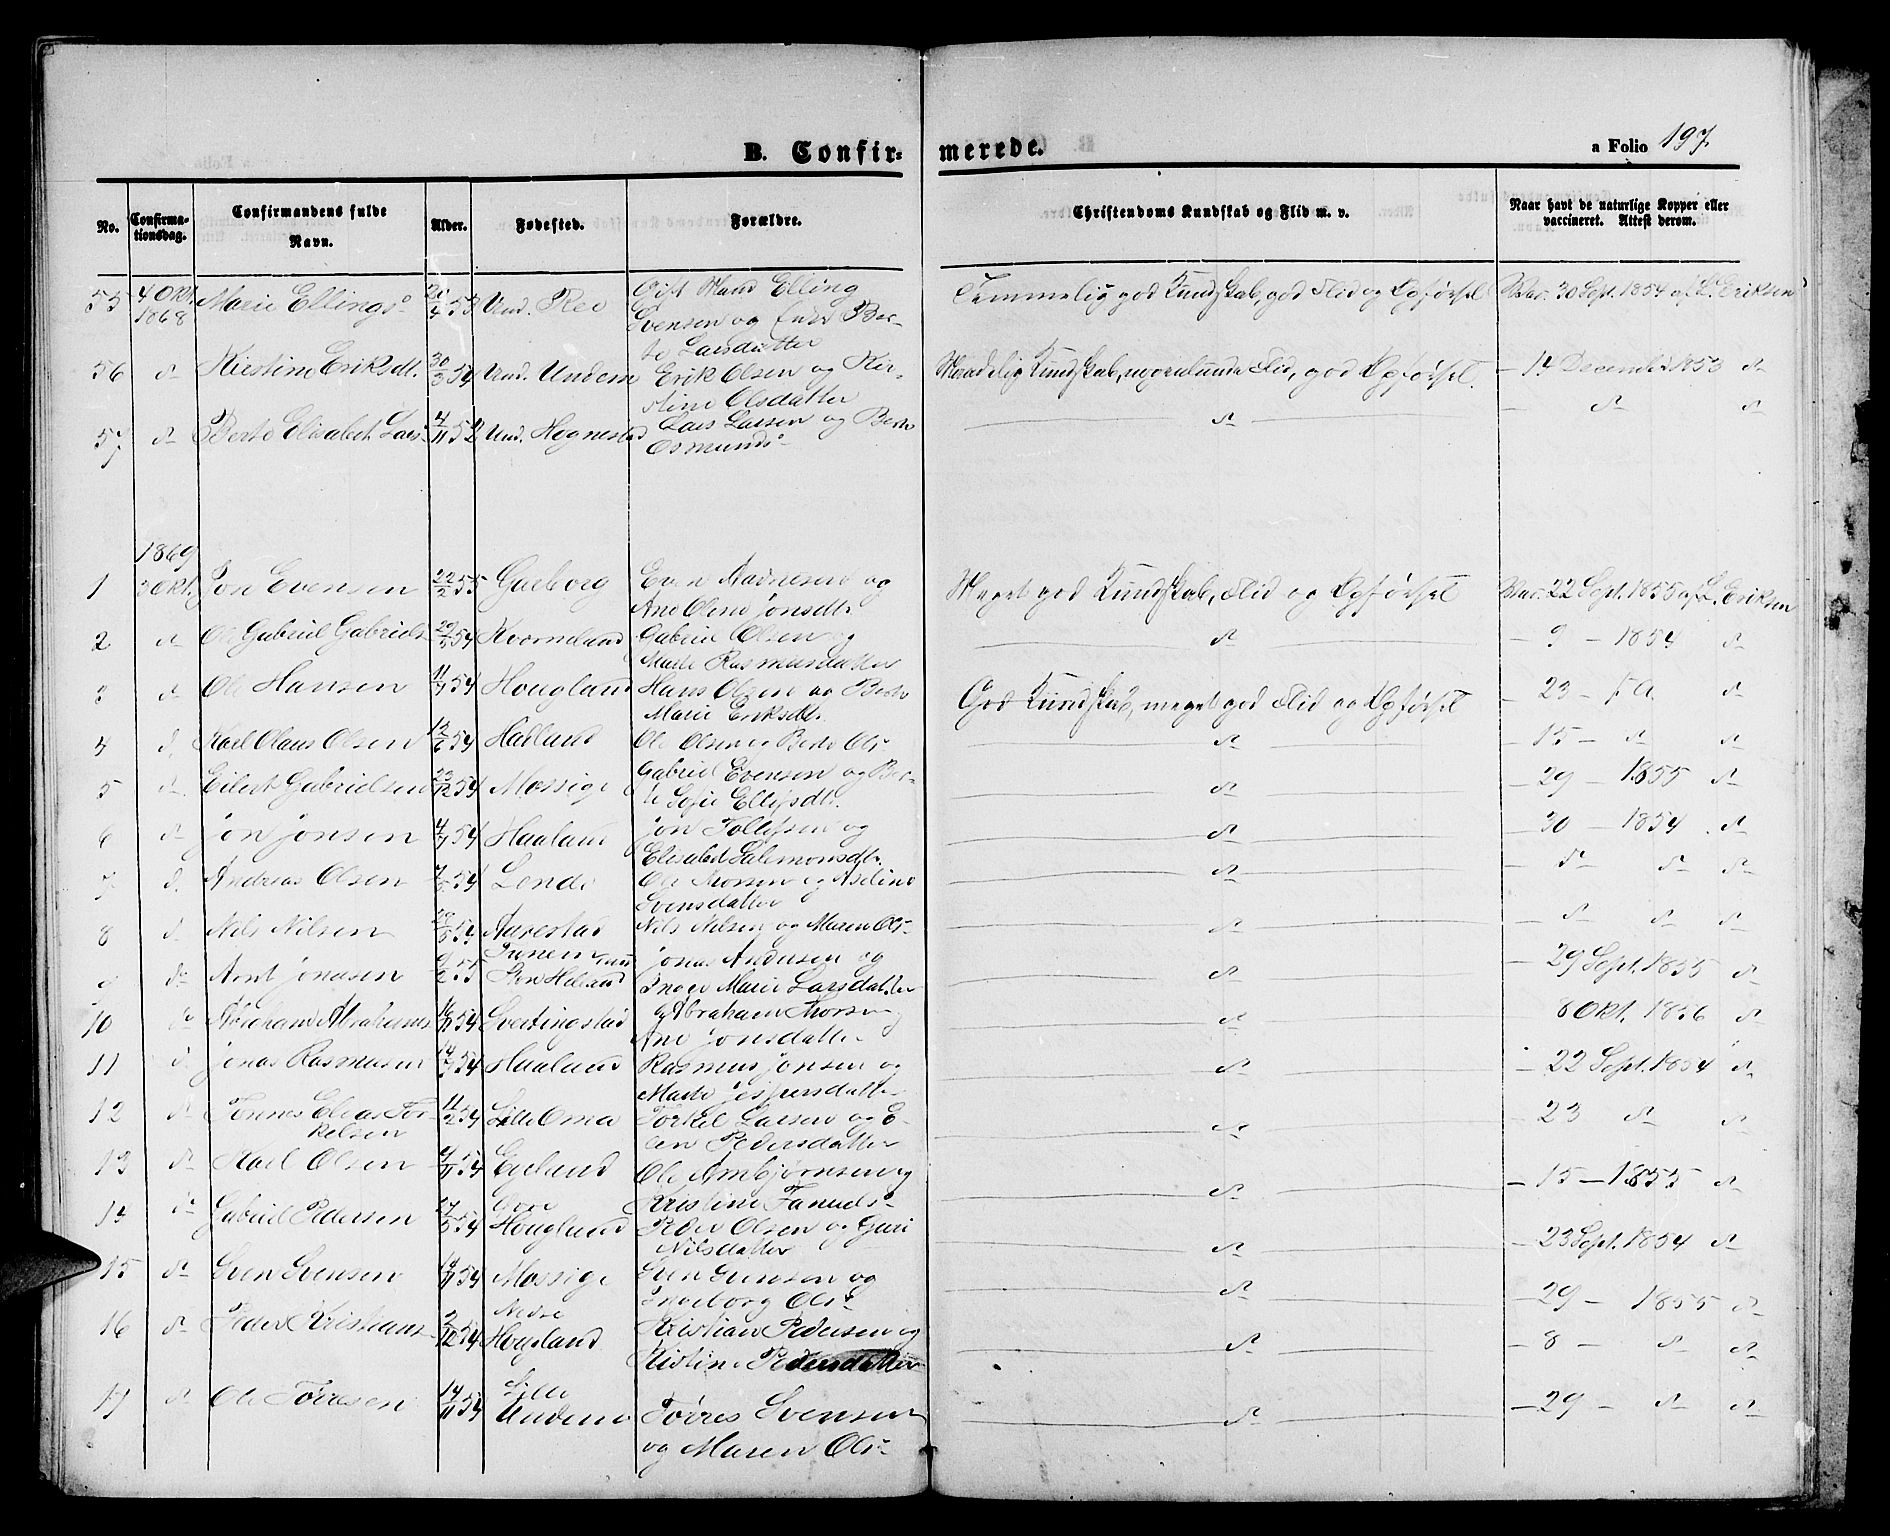 B. Confir-
merede.
a Folio 197.
No.
Confirma-
tionsdag.
Confirmandens fulde
Navn.
Alder.
Fødested.
Forældre.
Christendoms Kundskab og Flid m. v.
Naar havt de naturlige Kopper eller
vaccineret. Attest derom.
55 4 Okt. 1868 Marie Ellings 53 Und. Ree Gift Mand Elling
Svensen og Ber-
te Larsdatter
Temmelig god Kundskab, god Flid og Opførsel Vac. 30 Sept. 1854 af L. Eriksen
56 d Kirstine Eriksdt. 30/3 54 Und. Undem Erik Olsen og Kir-
stine Olsdatter
Maadelig Kundskab, Flid, god Opførsel. – 14 December 1853 d
57 d Berte Elisabet Lars 4/11 52 Und. Hognestad Lars Larsen og Berte
Osmunds
d – d d
1869
1 3 Okt. Jon Evensen 22/2 55 Garborg Even Aadnesen og
Ane Oline Jonsdt.
Meget god Kundskab, Flid og Opførsel Vac. 22 Sept. 1855 af L. Eriksen
2 d Ole Gabriel Gabriels 29/5 54 Kverneland Gabriel Olsen og
Marte Rasmusdatter
d – 9 – 1854 d
3 d Ole Hansen 11/7 54 Hougland Hans Olsen og Berte
Marie Eriksdt.
God Kundskab, meget god Flid og Opførsel – 23 – d
4 d. Karl Olaus Olsen 12/6 54 Hadland Ole Olsen og Berte Ols
d – 15 – d d
5 d. Eilert Gabrielsen 23/12 54 Mossige Gabriel Evensen og Ber-
te Sofie Ellefsdt.
d – 29 – 1855 d
6 d Jon Jonsen 4/7 54 Haaland Jon Tollefsen og
Elisabet Salomonsdt.
d – 30 – 1854 d
7 d. Andreas Olsen 54 Lende Ole Thorsen og Aseline
Svensdatter
d – d d d
8 d. Nils Nilsen 29/5 54 Aarestad Nils Nilsen og Maren Ols
d d d d
9 d Arnt Jonasen 9/2 55 Jonas Andersen og
Inger Marie Larsdatter
d – 29 Sept. 1855 d
10 d Abraham Abrahams 54 Svertingstad Abraham Thorsen og
Ane Jonsdatter
d 8 Okt. 1856 d
11 d. Jonas Rasmusen 54 Haaland Rasmus Jonsen og
Marte Jespersdatter
d – 22 Sept. 1854 d
12 d Tønnes Elias Tor-
kelsen 11/2 54 Lille Oma Torkel Larsen og E-
len Pedersdatter
d – 23 d d
13 d Karl Olsen 54 Eieland Ole Arnbjørnsen og
Kristine Fanuels
d – 15 – 1855 d
14 d Gabriel Pedersen 54 Øvre
Hougland Peder Olsen og Guri
Nilsdatter
d – 23 Sept. 1854 d
15 d Sven Svensen 54 Mossige Sven Svensen og
Ingeborg Ols
d – 29 – 1855 d
16 d Peder Kristians 2/12 54 Nedre
Hogeland Kristian Pedersen og
Kistine Pedersdatter
d – 8 – d d
17 d Ole Tørresen 14/11 54 Lille
Undem Tørres Svensen
og Maren Ols
d – 29 – d d